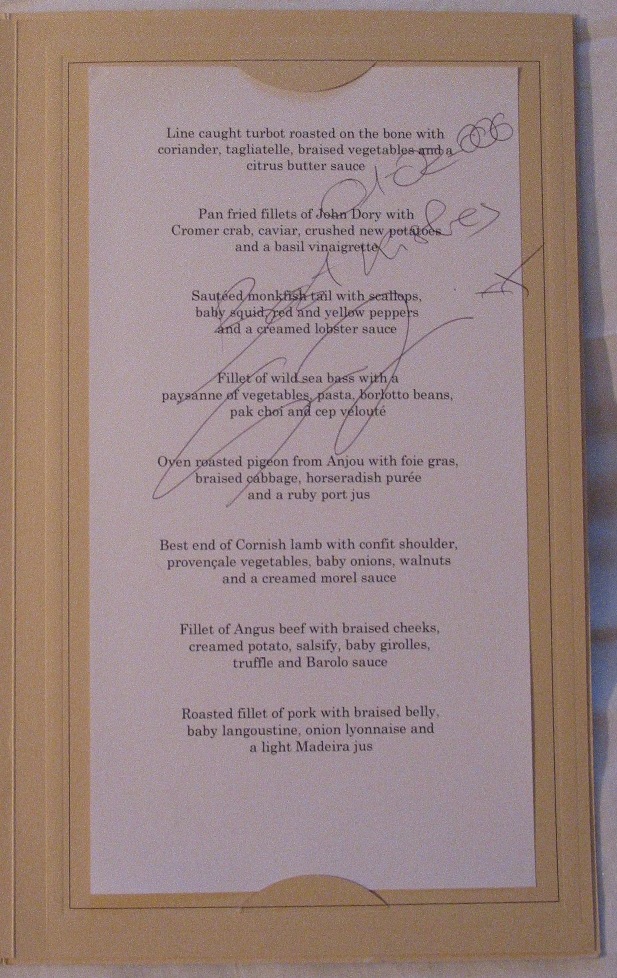 Line caught turbot roasted on the bone with
coriander, tagliatelle, braised vegetables and a
citrus butter sauce
Pan fried fillets of John Dory with
Cromer crab, caviar, crushed new potatoes
and a basil vinaigrette
Best Wishes
Sautéed monkfish tail with scallops,
baby squid, red and yellow peppers
and a creamed lobster sauce
Fillet of wild sea bass with a
paysanne of vegetables, pasta, borlotto beans,
pak choi and cep velouté
Oven roasted pigeon from Anjou with foie gras,
braised cabbage, horseradish purée
and a ruby port jus
Best end of Cornish lamb with confit shoulder,
provençale vegetables, baby onions, walnuts
and a creamed morel sauce
Fillet of Angus beef with braised cheeks,
creamed potato, salsify, baby girolles,
truffle and Barolo sauce
Roasted fillet of pork with braised belly,
baby langoustine, onion lyonnaise and
a light Madeira jus